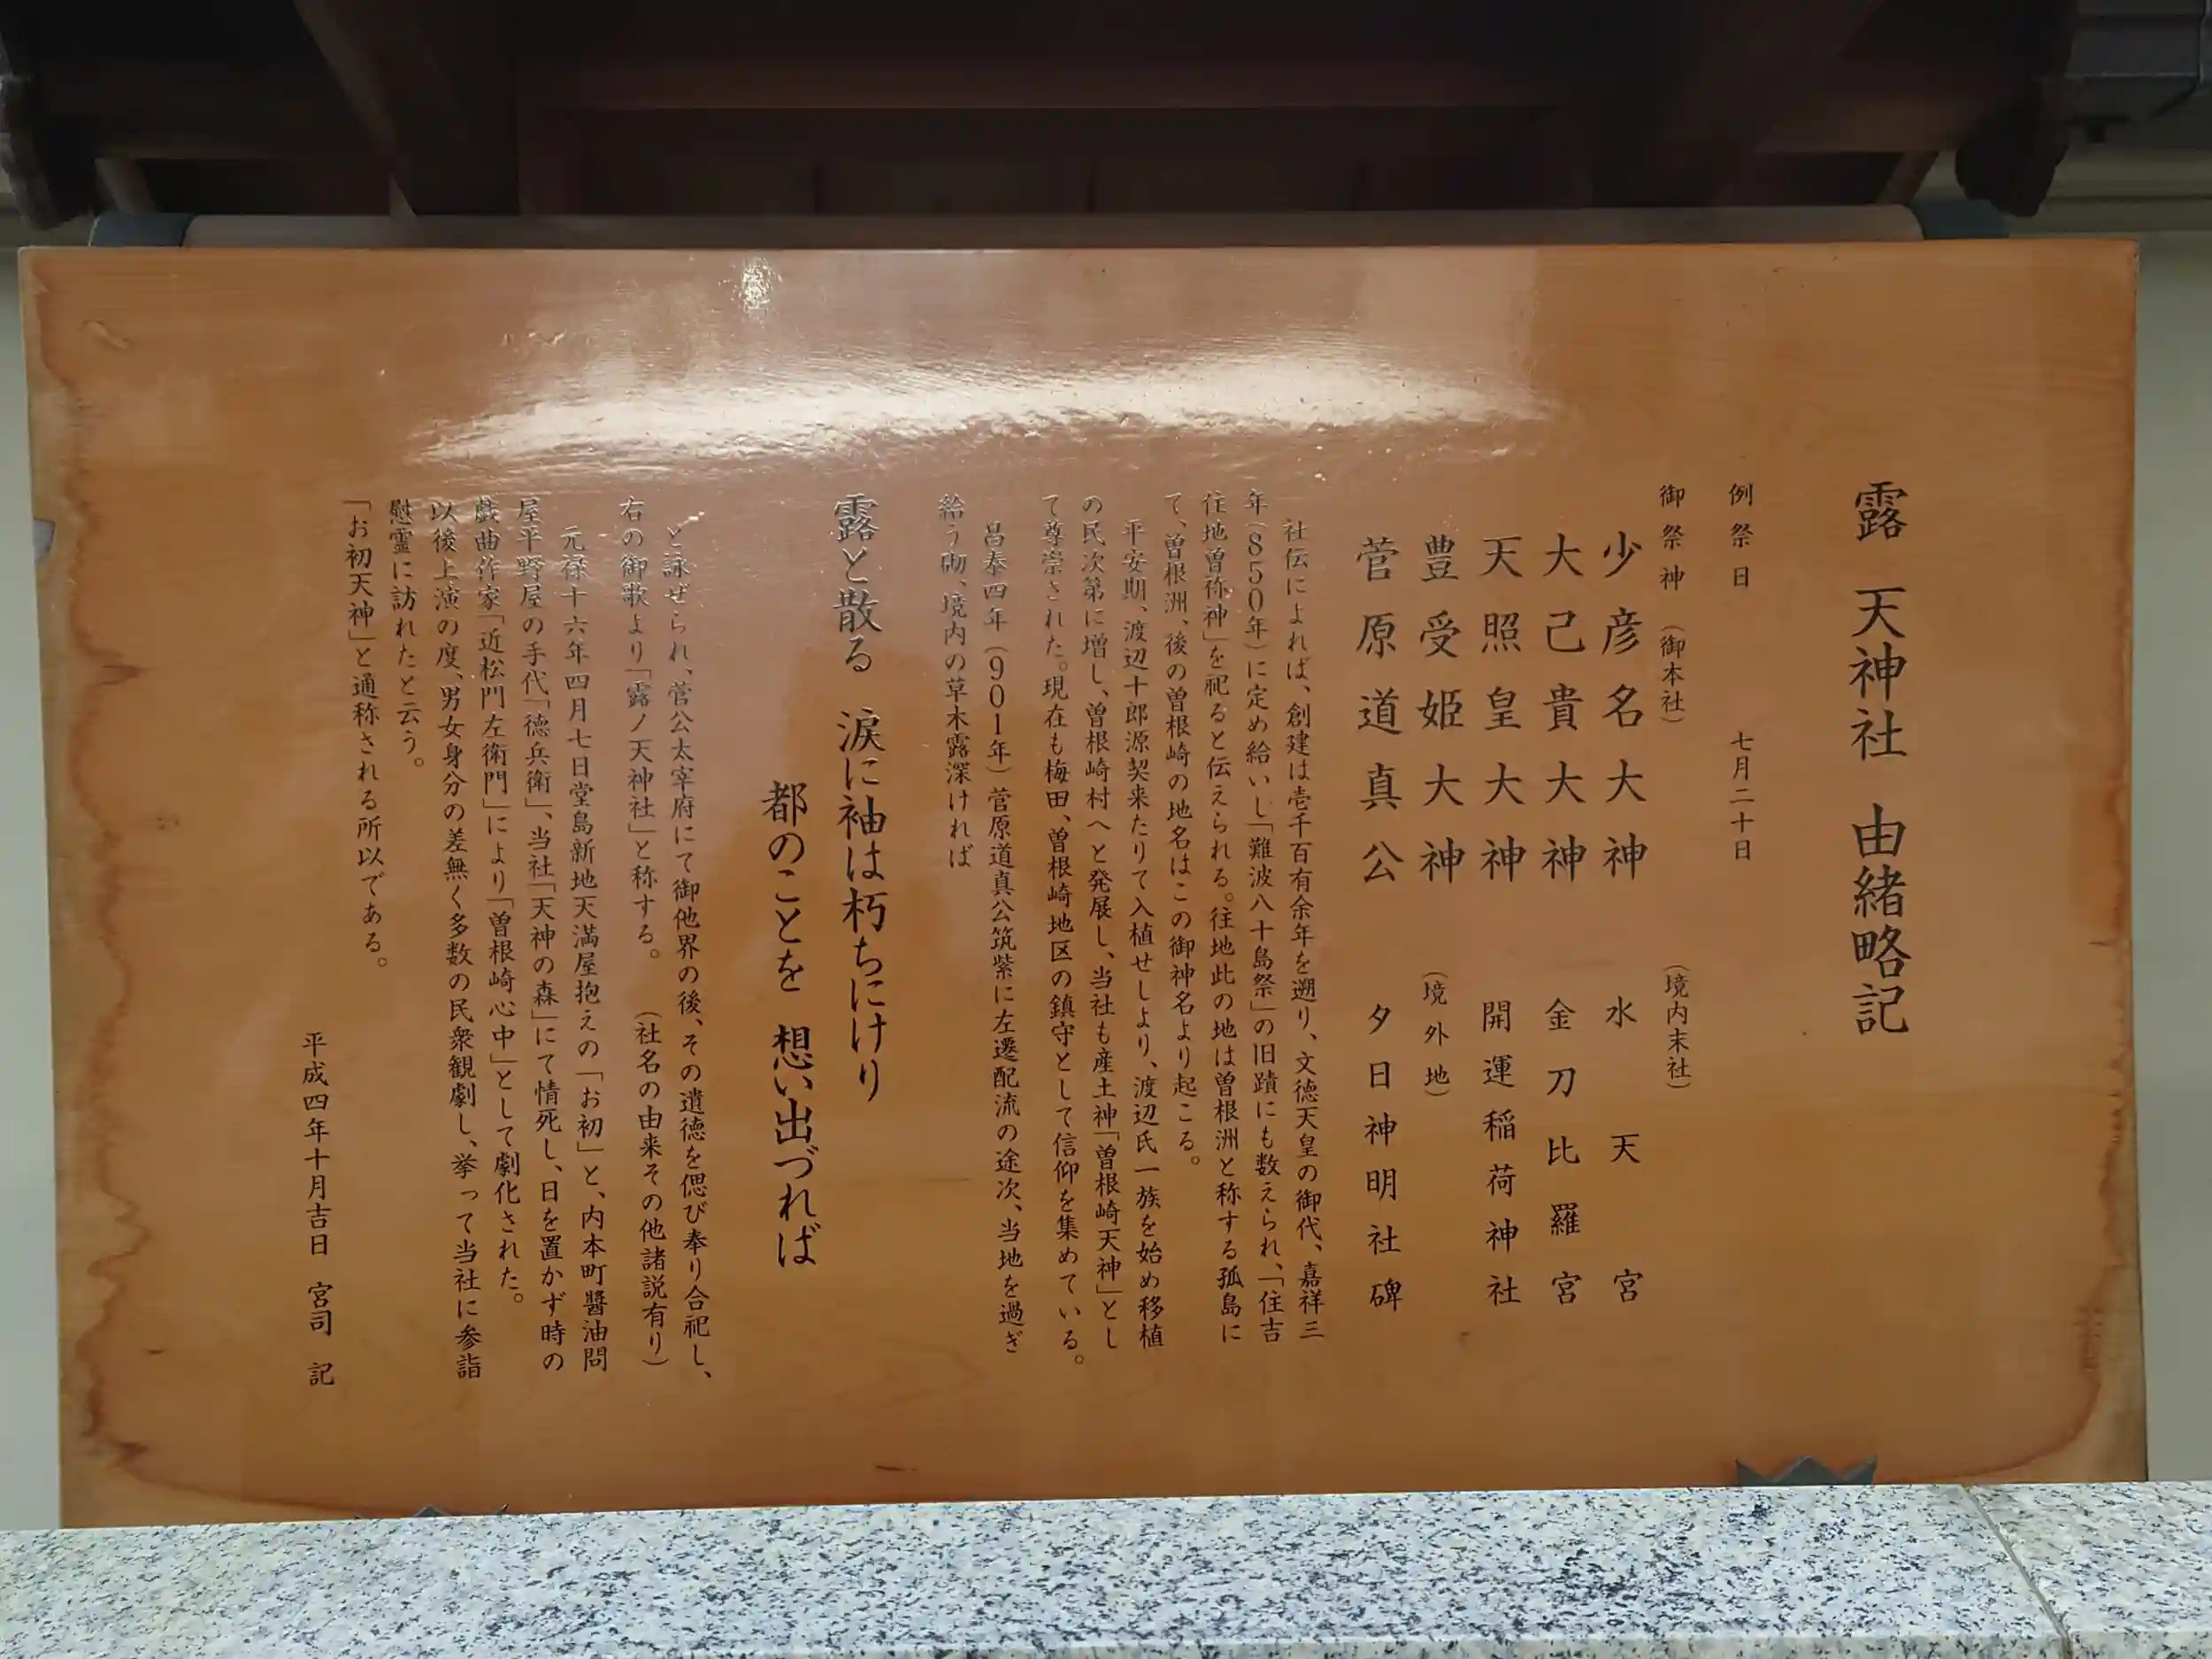 露 天神社 由緒略記
例祭日 七月二十日
御祭神 (御本社) (境内末社)
少彦名大神 水天宮
大己貴大神 金刀比羅宮
天照皇大神 開運稲荷神社
豊受姫大神 (境外地)
菅原道真公 夕日神明社碑
社伝によれば、創建は壱千百有余年を遡り、文徳天皇の御代、嘉祥三
年(850年)に定め給いし「難波八十島祭」の旧蹟にも数えられ、「住吉
住地曽祢神」を祀ると伝えられる。往地此の地は曽根洲と称する孤島に
て、曽根洲、後の曽根崎の地名はこの御神名より起こる。
平安期、渡辺十郎源契来たりて入植せしより、渡辺氏一族を始め移植
の民次第に増し、曽根崎村へと発展し、当社も産土神「曽根崎天神」とし
て尊崇された。現在も梅田、曽根崎地区の鎮守として信仰を集めている。
昌泰四年(901年)菅原道真公筑紫に左遷配流の途次、当地を過ぎ
給う砌、境内の草木露深ければ
露と散る 涙に袖は朽ちにけり
都のことを 想い出づれば
と詠ぜられ、菅公太宰府にて御他界の後、その遺徳を偲び奉り合祀し、
右の御歌より「露ノ天神社」と称する。 (社名の由来その他諸説有り)
元禄十六年四月七日堂島新地天満屋抱えの「お初」と、内本町醬油問
屋平野屋の手代「徳兵衛」、当社「天神の森」にて情死し、日を置かず時の
戯曲作家「近松門左衛門」により「曽根崎心中」として劇化された。
以後上演の度、男女身分の差無く多数の民衆観劇し、挙って当社に参詣
慰霊に訪れたと云う。
「お初天神」と通称される所以である。
平成四年十月吉日 宮司 記